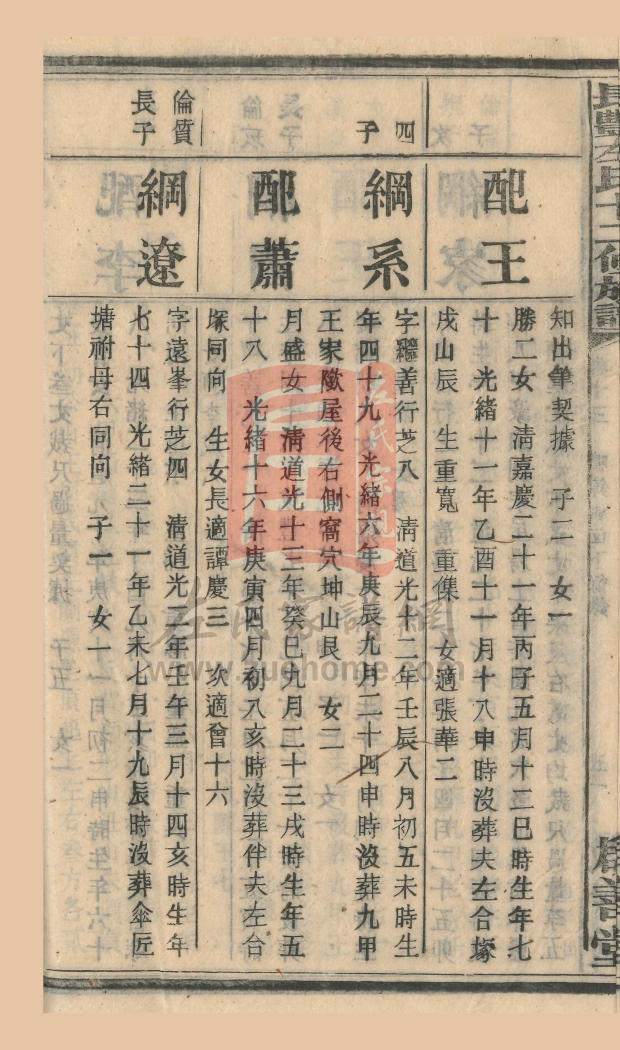 長豐左氏十二修族譜
知出筆契據 子二 女一
配王
勝二女 淸嘉慶二十一年丙子五月十二巳時生年七
十 光緒十一年乙酉十一月十八申時沒葬夫左合塚
戌山辰 生重寬 重傑 女適張華二
四子
綱系
字繼善行芝八 淸道光十二年壬辰八月初五未時生
年四十九 光緒六年庚辰九月二十四申時沒葬九甲
王家歐屋後右側窩穴坤山艮 女二
配蕭
月盛女 淸道光十三年癸巳九月二十三戌時生年五
十八 光緒十六年庚寅四月初八亥時沒葬伴夫左合
塚同向 生女長適譚慶三 次適曾十六
倫質長子
綱遼
字遠峯行芝四 淸道光二年壬午三月十四亥時生年
七十四 光緒二十一年乙未七月十九辰時沒葬傘匠
塘祔母右同向 子一 女一
善堂
左氏家譜網
www.zuohome.com